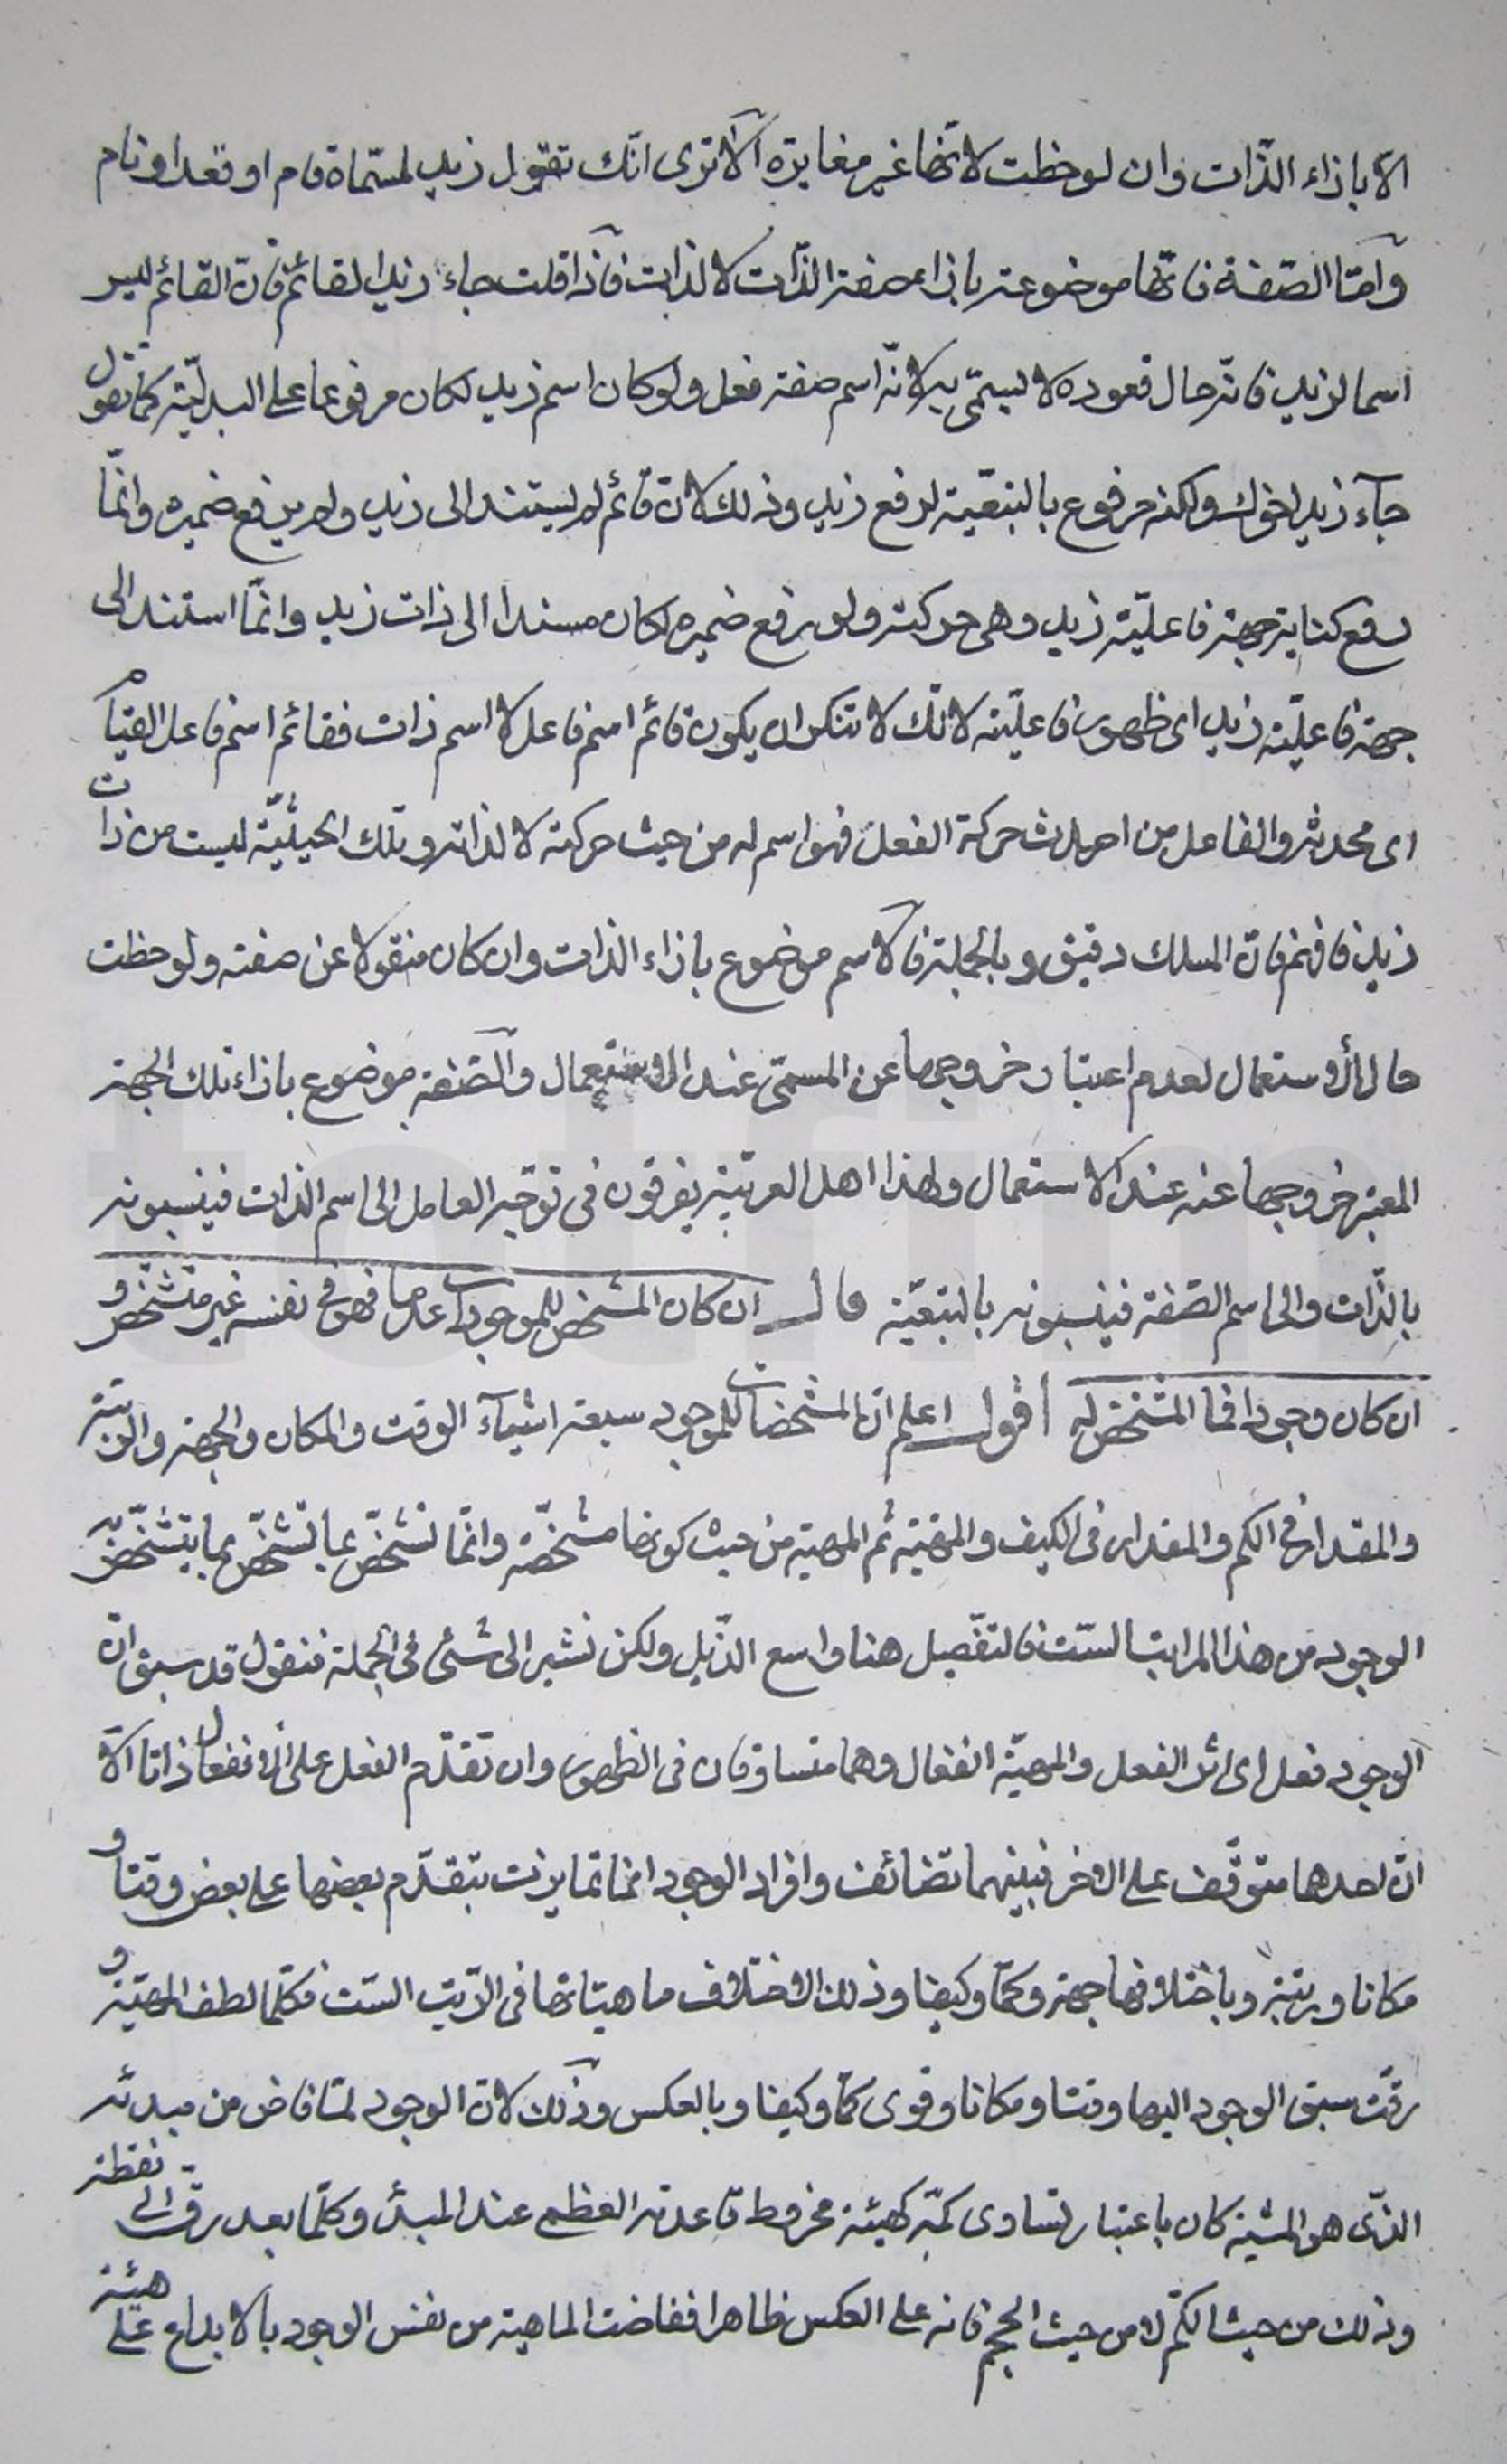 الّا بازاء الذّات وان لوحظت لانّها غير مغايرة ألا ترى انّك تقول زيد لمسمّاة قام او قعد او نام
وامّا الصّفة فانّها موضوعة بازاء صفة الذّات لا لذات فاذا قلت جاء زيد القائم فانّ القائم ليس
اسما لزيد فانّه حال قعوده لا ليسمّى به لانّه اسم صفة فعل ولو كان اسم زيد لكان مرفوعا على البدليّة كما تقول
جآء زيد اخوك ولكنه مرفوع بالتبعّية لرفع زيد وذلك لانّ قائم لم ليستند الى زيد ولم يرفع ضميره وانمّا
رفع كناية جهة فاعليّة زيد وهى حركته ولو رفع ضميره لكان مسندا الى ذات زيد وانمّا استند الى
جهة فاعليّة زيد اى ظهور فاعليّته لانّك لا تنكر ان يكون قائم اسم فاعل لا اسم ذات فقائم اسم فاعل القيام
اى محدثه والفاعل من احدث حركة الفعل فهو اسم له من حيث حركته لا لذاته وتلك الحيثيّة ليست من ذات
زيد فافهم فانّ المسلك دقيق وبالجملة فالاسم موضوع بازاء الذات وان كان منقولا عن صفته ولوحظت
حال الأستعمال لعدم اعتبار خروجها عن المسمّى عند الاستعمال والصّفة موضوع بازاء تلك الجهة
المعتبر خروجها عنه عند الاستعمال ولهذا اهل العربيّة يفرقون فى توجّه العامل الى اسم الذات فينسبونه
بالذّات والى اسم الصّفة فينسبونه بالتبعّية قال ان كان المشخص للموجودات عدما فهو فى نفسه غير متشخّص و
ان كان وجودا فما المشخص له اقول اعلم انّ المشخصات للموجود سبعة اشيآء الوقت والمكان والجهة والرتبة
والمقدار فى الكم والمقدار فى الكيف والمهيّة ثم المهية من حيث كونها مشخّصة وانمّا تشخّص بما تشخّص بما يتشخّص به
الوجود من هذا المراتب السّت فالتفّصيل هنا واسع الذّيل ولكن نشير الى شئ فى الجملة فنقول قد سبق انّ
الوجود فعل اى اثر الفعل والمهيّة انفعال وهما متساوقان فى الظهور وان تقدّم الفعل على الانفعال ذاتا الّا
انّ احدهما متوقّف على الاخر فبينهما تضائف وافراد الوجود انما تمايزت بتقدّم بعضها على بعض وقتا و
مكانا ورتبة وباختلافها جهة وكمّا وكيفا وذلك لاختلاف ماهيّاتها فى الرّتب السّت فكلّما لطف المهيّة و
رقّت سبق الوجود اليها وقتا ومكانا وقوى كمّا وكيفا وبالعكس وذلك لانّ الوجود لمّا فاض من مبدئه
الذّى هو المشية كان باعتبار تساوى كمّه كهيئة مخروط قاعدته العظمى عند المبدأ وكلّما بعد رقّ الى نقطة
وذلك من حيث الكمّ لا من حيث الحجم فانه على العكس ظاهرا ففاضت الماهية من نفس الوجود بالابداع على هيئة